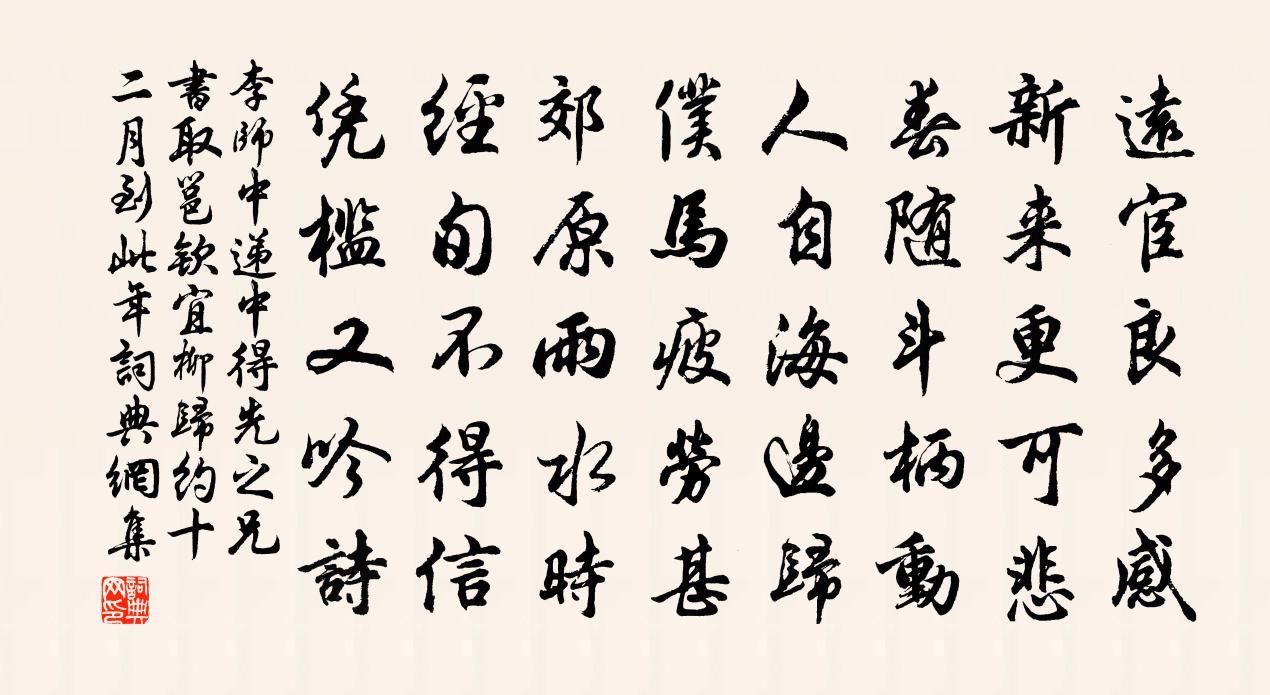 遠宦良多感
新来更可悲
春随斗柄動
人自海邊歸
僕馬疲勞甚
郊原雨水時
經旬不得信
凭檻又吟詩
李師中遞中得先之兄
書取邕欽宜柳歸約十
二月到此年詞典網集
詞典網印